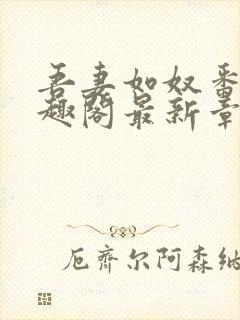 吾妻如奴番
趣阁最新章
厄齐尔阿森纳